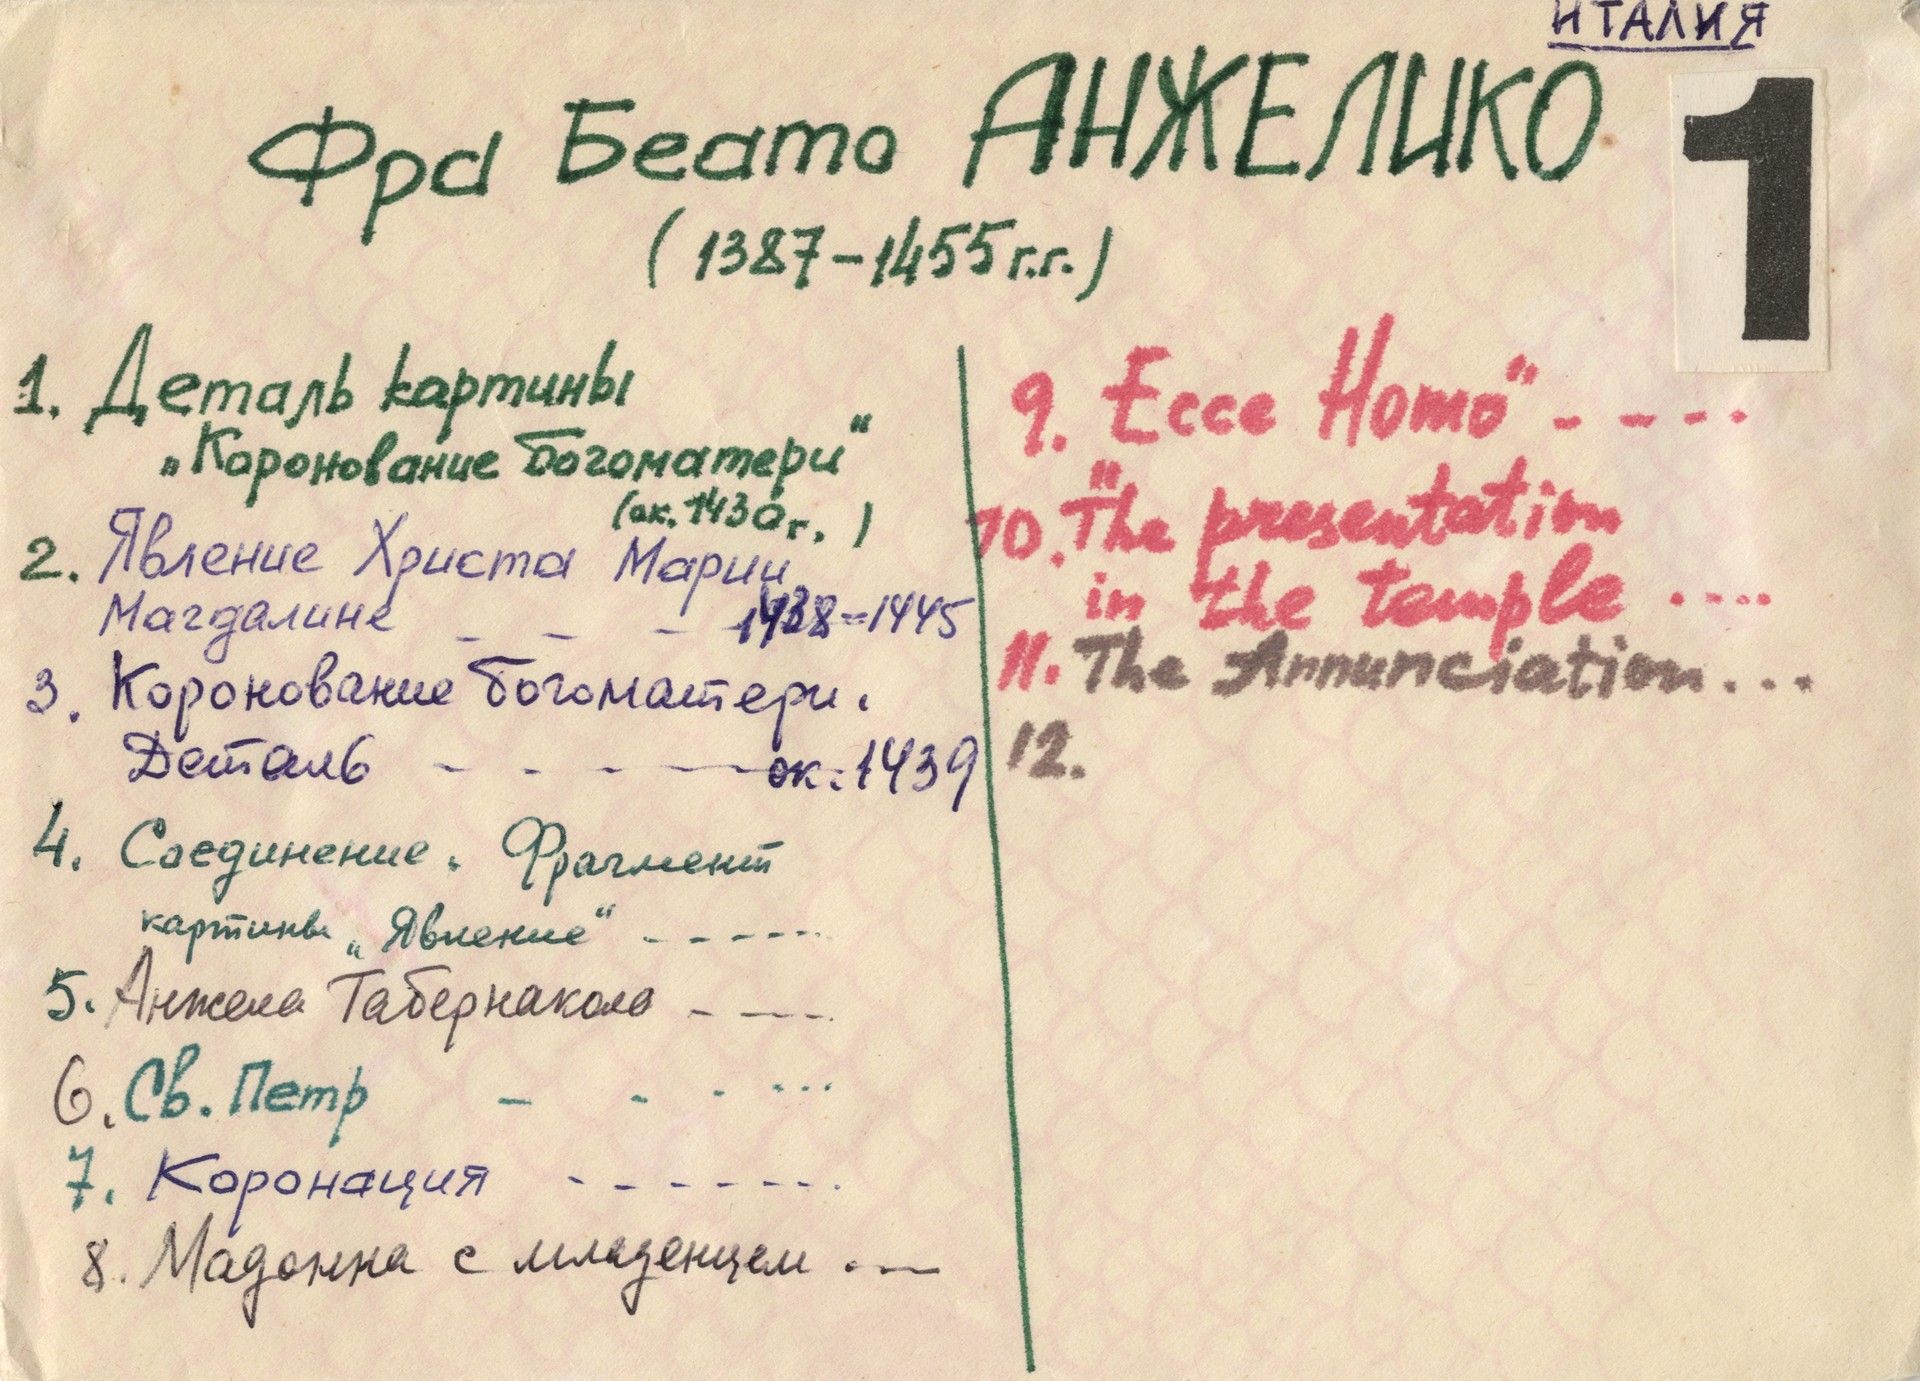 ИТАЛИЯ
Фра Беато АНЖЕЛИКО
1
(1387-1455 г.г.)
1. Деталь картины
„Коронование богоматери“
(ок. 1430 г.)
2. Явление Христа Марии
Магдалине _ _ _ 1438-1445
3. Коронование богоматери.
Деталь - - - - ок. 1439
4. Соединение. Фрагмент
картины „Явление“ - - - - -
5. Анжела Табернакола - - - -
6. Св. Петр - - - ...
7. Коронация - - - - - - -
8. Мадонна с младенцем . - —
9. Ecce Homo" - - - -
10. "The presentation
in the temple ....
11. The Annunciation...
12.